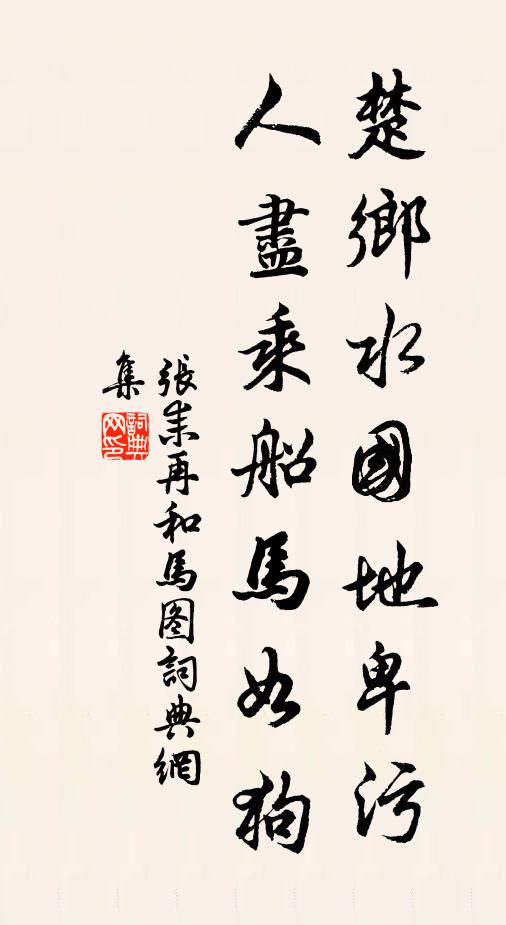 楚鄉水國地卑污
人盡乘船馬如狗
張耒再和馬图詞典網
集
詞典
网印